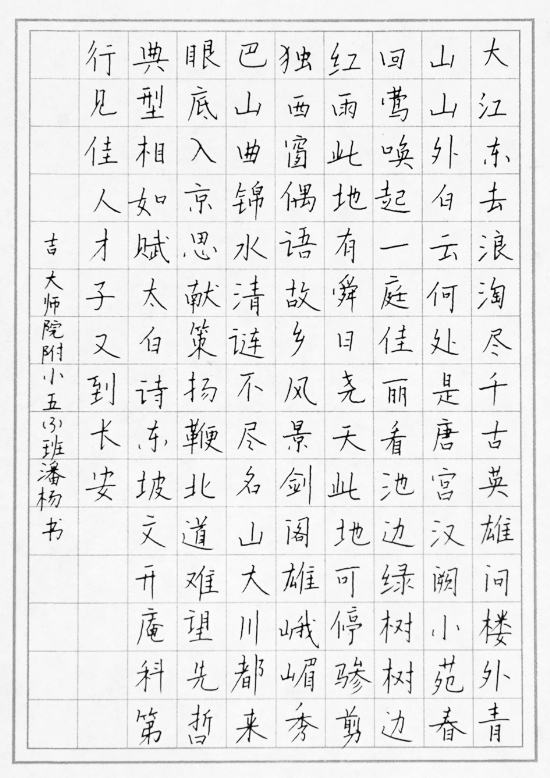 大江东去浪淘尽千古英雄问楼外青
山山外白云何处是唐宫汉阙小苑春
回莺唤起一庭佳丽看池边绿树树边
红雨此地有舜日尧天此地可停骖剪
独西窗偶语故乡风景剑阁雄峨嵋秀
巴山曲锦水清涟不尽名山大川都来
眼底入京思献策扬鞭北道难望先哲
典型相如赋太白诗东坡文开庵科第
行见佳人才子又到长安
吉大师院附小五(3)班潘杨书